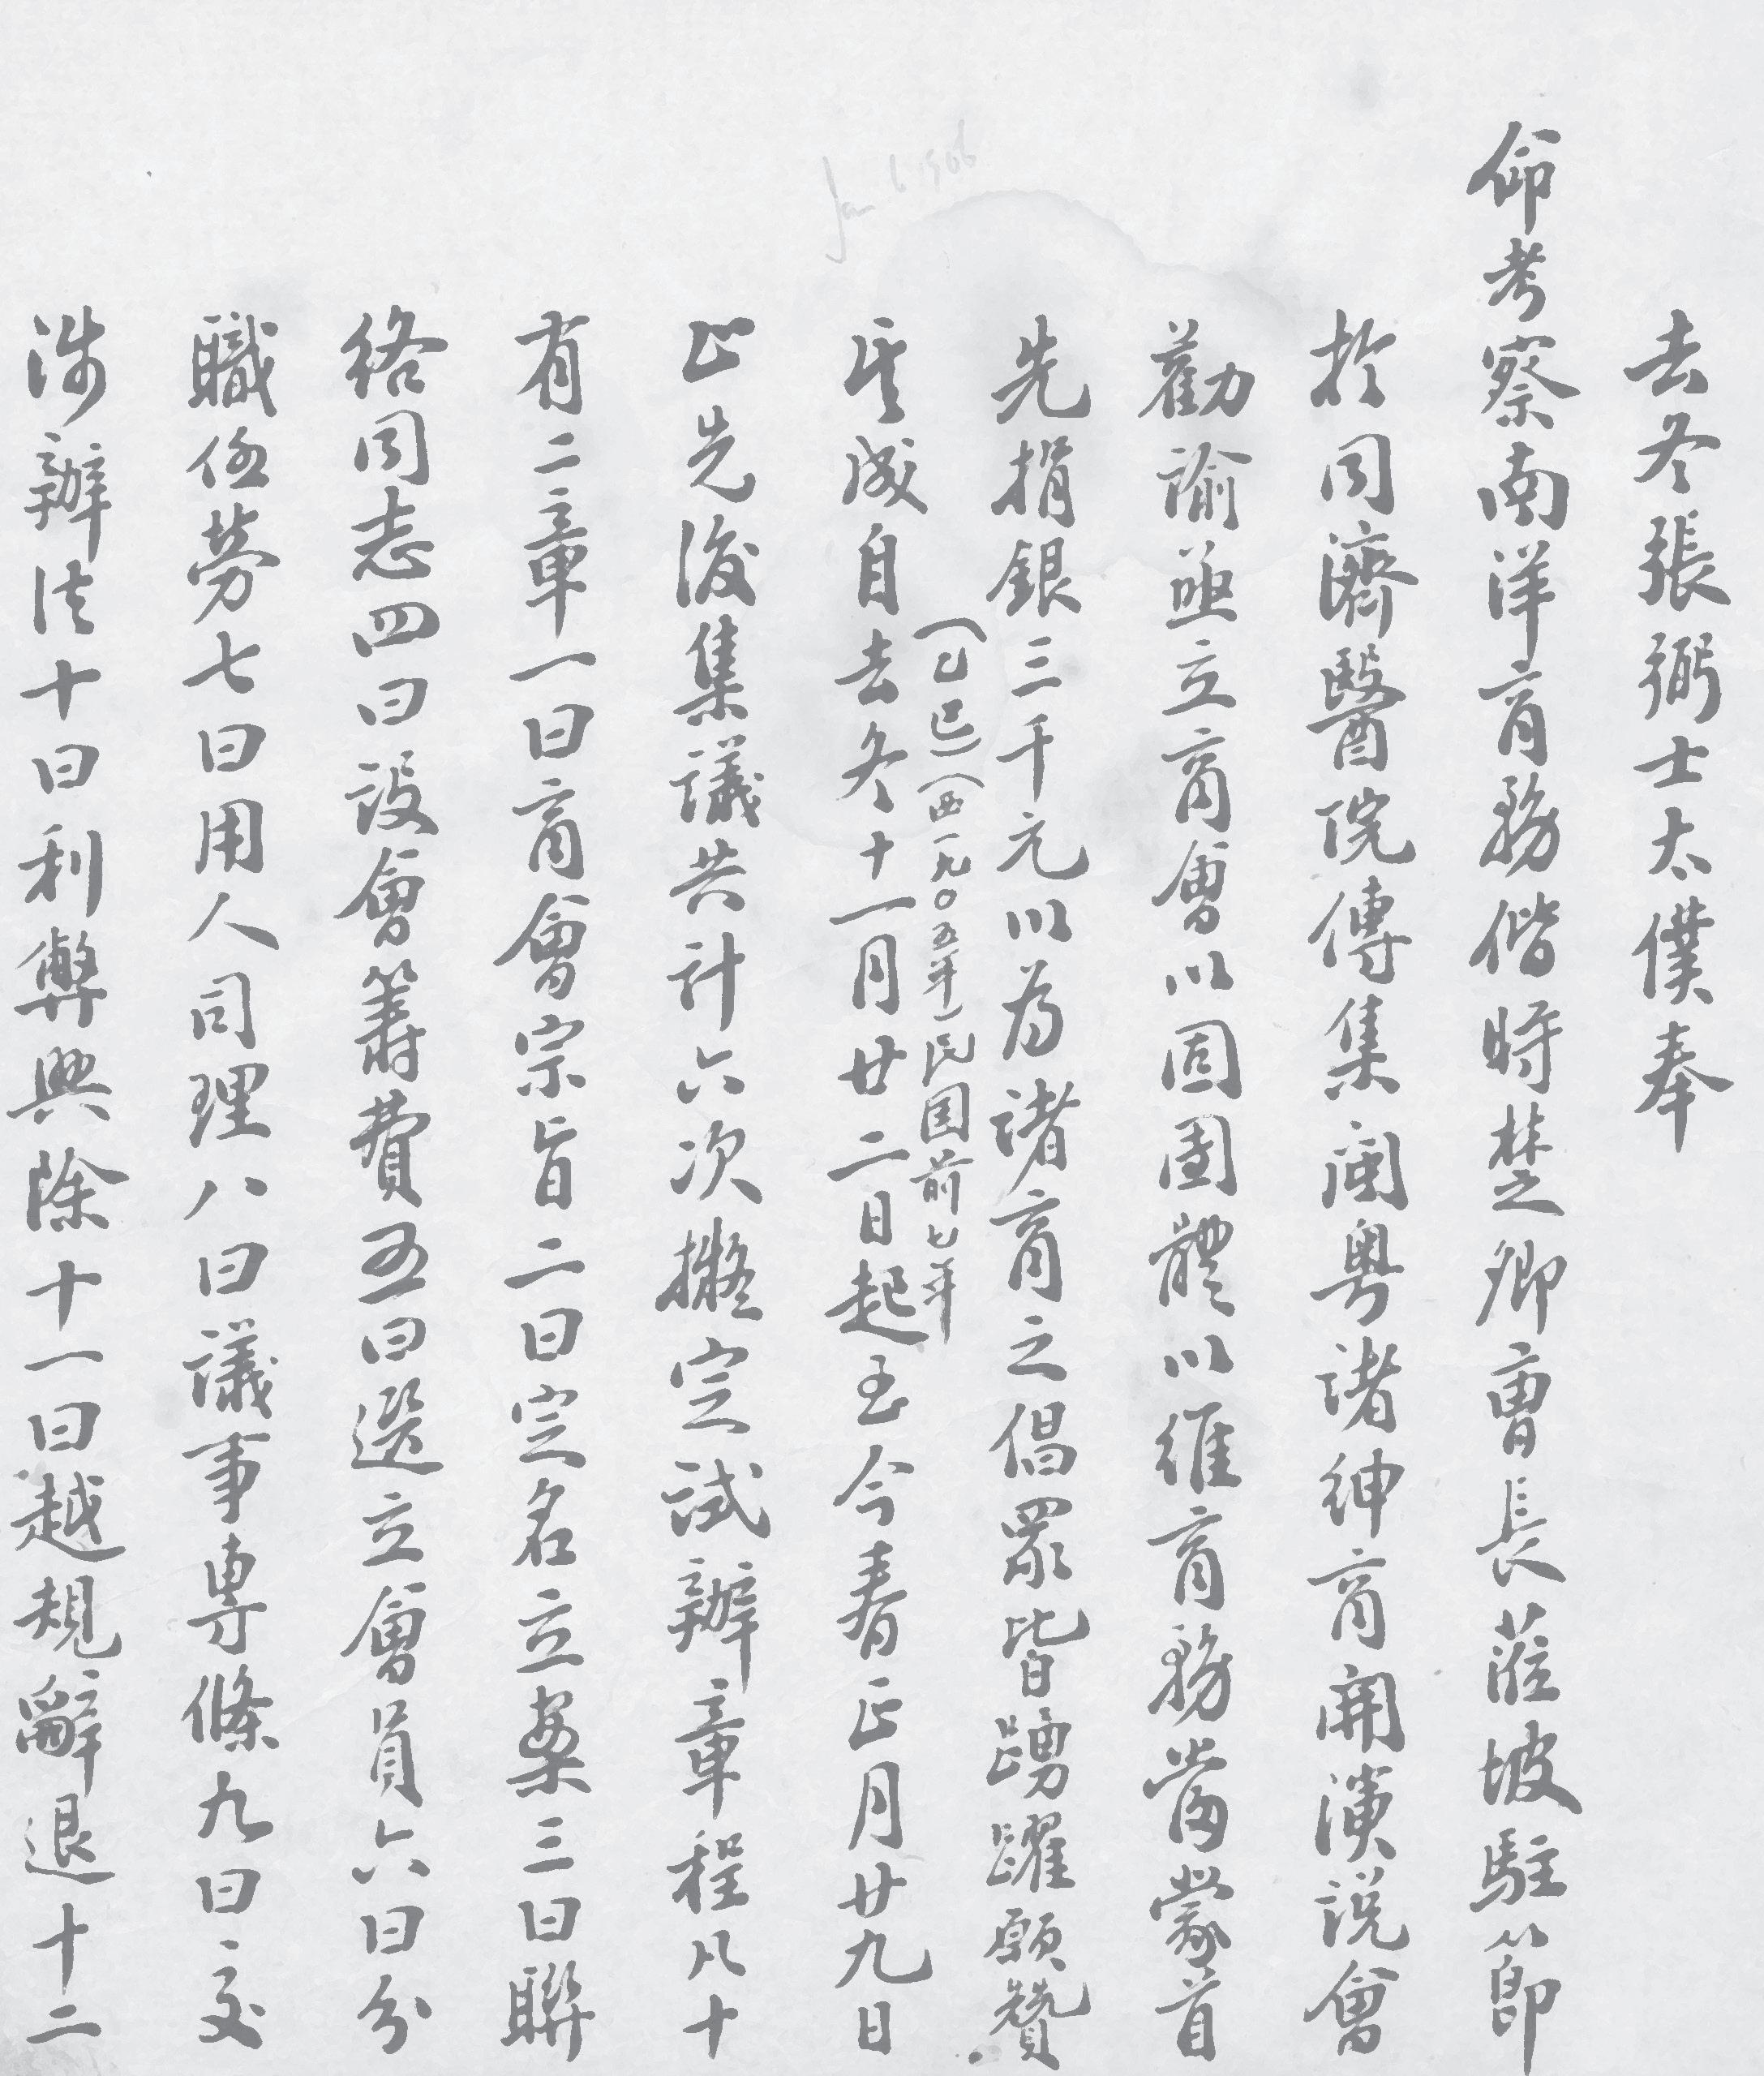 去冬張弼士太僕奉
命考察南洋商務偕時楚卿曹長蒞坡駐節
於同濟醫院傳集閩粵諸紳商開演說會
勸諭亟立商會以固團體以維商務當蒙首
先捐銀三千元以為諸商之倡眾皆踴躍願贊
其成自去冬十一月廿二日起至今春正月廿九日
(乙巳)(西一九〇五年)民国前七年
止先後集議共計六次擬定試辦章程凡十
有二章一曰商會宗旨二曰定名立案三曰聯
絡同志四曰設會籌費五曰選立會員六曰分
職任勞七曰用人司理八曰議事專條九曰交
涉辦法十曰利弊興除十一曰越規辭退十二
Jan 6 1906